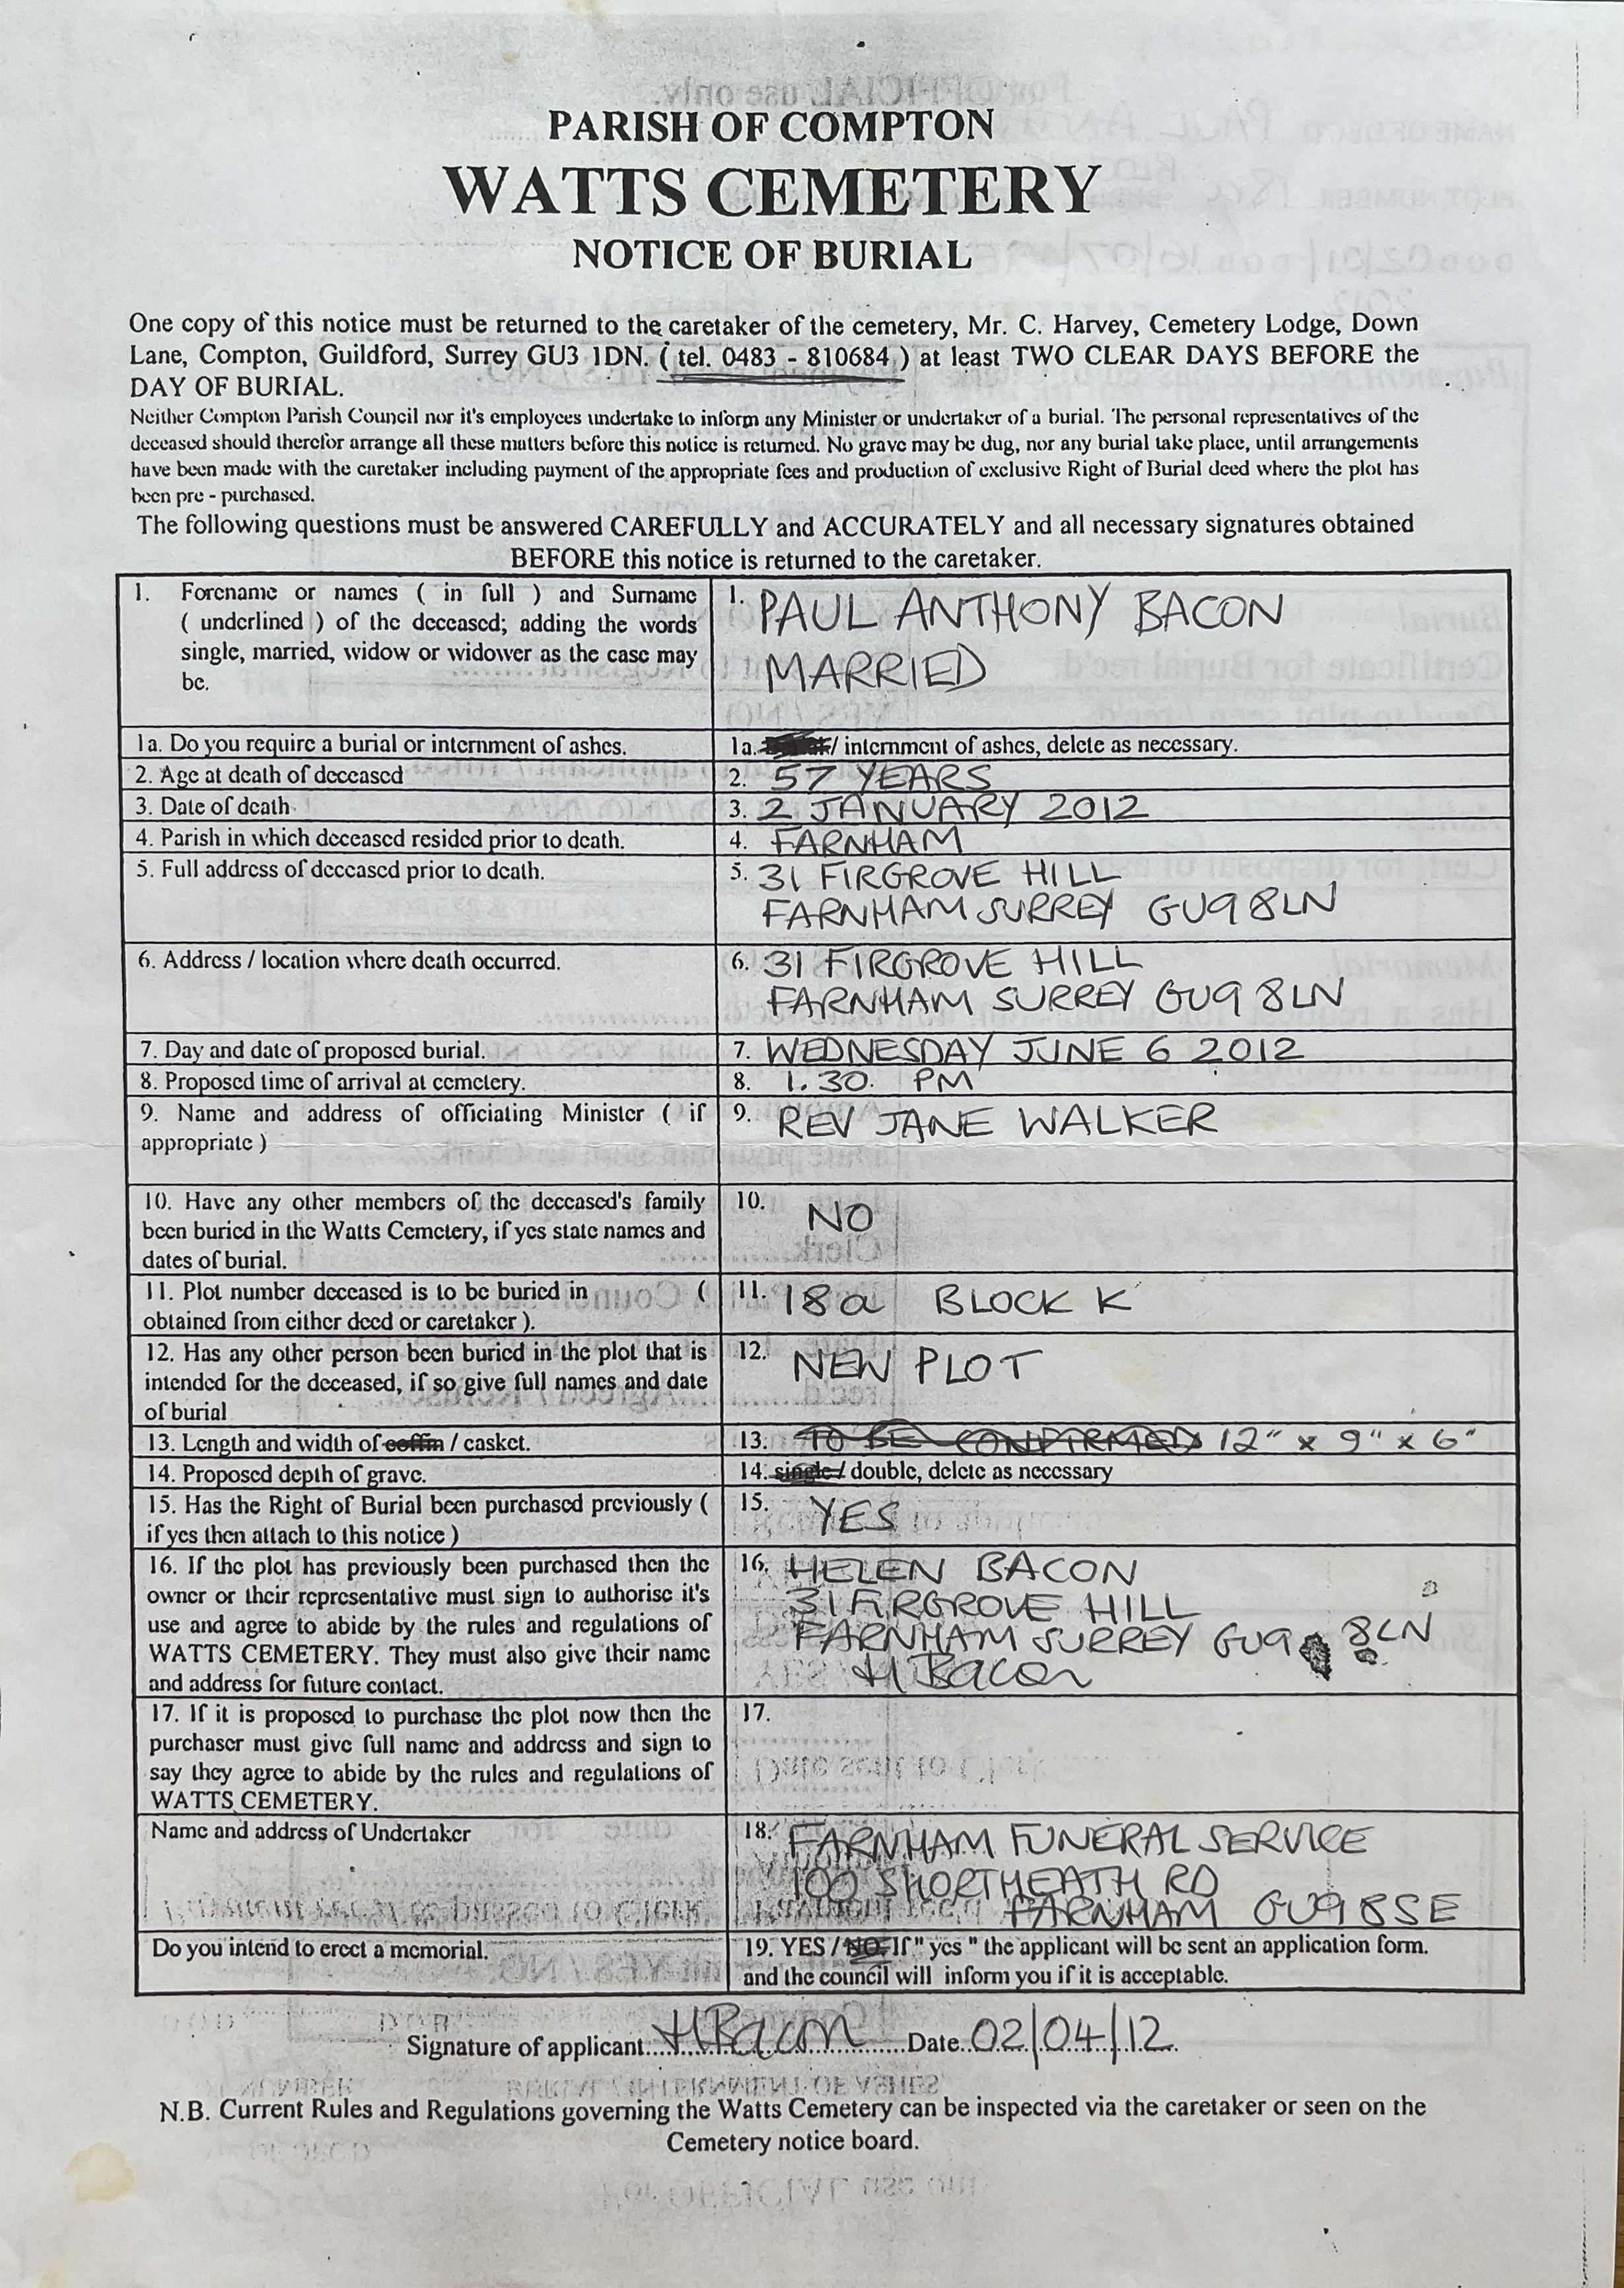 PARISH OF COMPTON
WATTS CEMETERY
NOTICE OF BURIAL
One copy of this notice must be returned to the caretaker of the cemetery, Mr. C. Harvey, Cemetery Lodge, Down
Lane, Compton, Guildford, Surrey GU3 1DN. ( tel. 0483 - 810684 ) at least TWO CLEAR DAYS BEFORE the
DAY OF BURIAL.
Neither Compton Parish Council nor it's employees undertake to inform any Minister or undertaker of a burial. The personal representatives of the
deceased should therefor arrange all these matters before this notice is returned. No grave may be dug, nor any burial take place, until arrangements
have been made with the caretaker including payment of the appropriate fees and production of exclusive Right of Burial deed where the plot has
been pre - purchased.
The following questions must be answered CAREFULLY and ACCURATELY and all necessary signatures obtained
BEFORE this notice is returned to the caretaker.
1. Forename or names ( in full ) and Surname
( underlined ) of the deceased; adding the words
single, married, widow or widower as the case may
be.
1. PAUL ANTHONY BACON
MARRIED
1a. Do you require a burial or internment of ashes.
1a. / internment of ashes, delete as necessary.
2. Age at death of deceased
2. 57 YEARS
3. Date of death
3. 2 JANUARY 2012
4. Parish in which deceased resided prior to death.
4. FARNHAM
5. Full address of deceased prior to death.
5. 31 FIRGROVE HILL
FARNHAM SURREY GU9 8LN
6. Address / location where death occurred.
6. 31 FIRGROVE HILL
FARNHAM SURREY GU9 8LN
7. Day and date of proposed burial.
7. WEDNESDAY JUNE 6 2012
8. Proposed time of arrival at cemetery.
8. 1.30. PM
9. Name and address of officiating Minister ( if
appropriate )
9. REV JANE WALKER
10. Have any other members of the deceased's family
been buried in the Watts Cemetery, if yes state names and
dates of burial.
10. NO
11. Plot number deceased is to be buried in (
obtained from either deed or caretaker ).
11. 18a BLOCK K
12. Has any other person been buried in the plot that is
intended for the deceased, if so give full names and date
of burial
12. NEW PLOT
13. Length and width of coffin / casket.
13. TO BE CONFIRMED 12" x 9" x 6"
14. Proposed depth of grave.
14. single / double, delete as necessary
15. Has the Right of Burial been purchased previously (
if yes then attach to this notice )
15. YES
16. If the plot has previously been purchased then the
owner or their representative must sign to authorise it's
use and agree to abide by the rules and regulations of
WATTS CEMETERY. They must also give their name
and address for future contact.
16. HELEN BACON
31 FIRGROVE HILL
FARNHAM SURREY GU9 8LN
H Bacon
17. If it is proposed to purchase the plot now then the
purchaser must give full name and address and sign to
say they agree to abide by the rules and regulations of
WATTS CEMETERY.
17.
Name and address of Undertaker
18. FARNHAM FUNERAL SERVICE
100 SHORTHEATH RD
FARNHAM GU9 8SE
Do you intend to erect a memorial.
19. YES / NO. If " yes " the applicant will be sent an application form.
and the council will inform you if it is acceptable.
Signature of applicant....HBacon....Date..02/04/12.
N.B. Current Rules and Regulations governing the Watts Cemetery can be inspected via the caretaker or seen on the
Cemetery notice board.